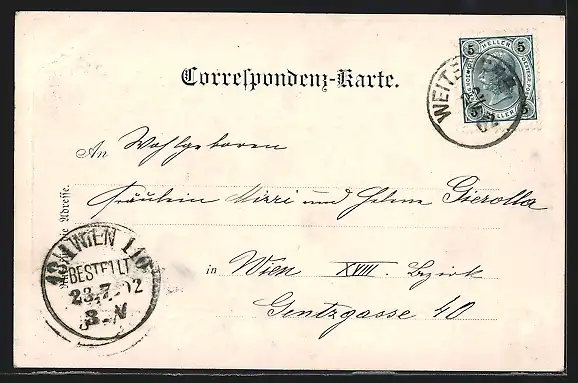 5 HELLER 5
WEITE
02
Correspondenz-Karte.
An Wohlgeboren
Fräulein Mizzi und Helene Gierolla
Adresse.
in Wien XVIII. Bezirk
Gentzgasse 40
WIEN 110
BESTELLT
23.7.02
3-N